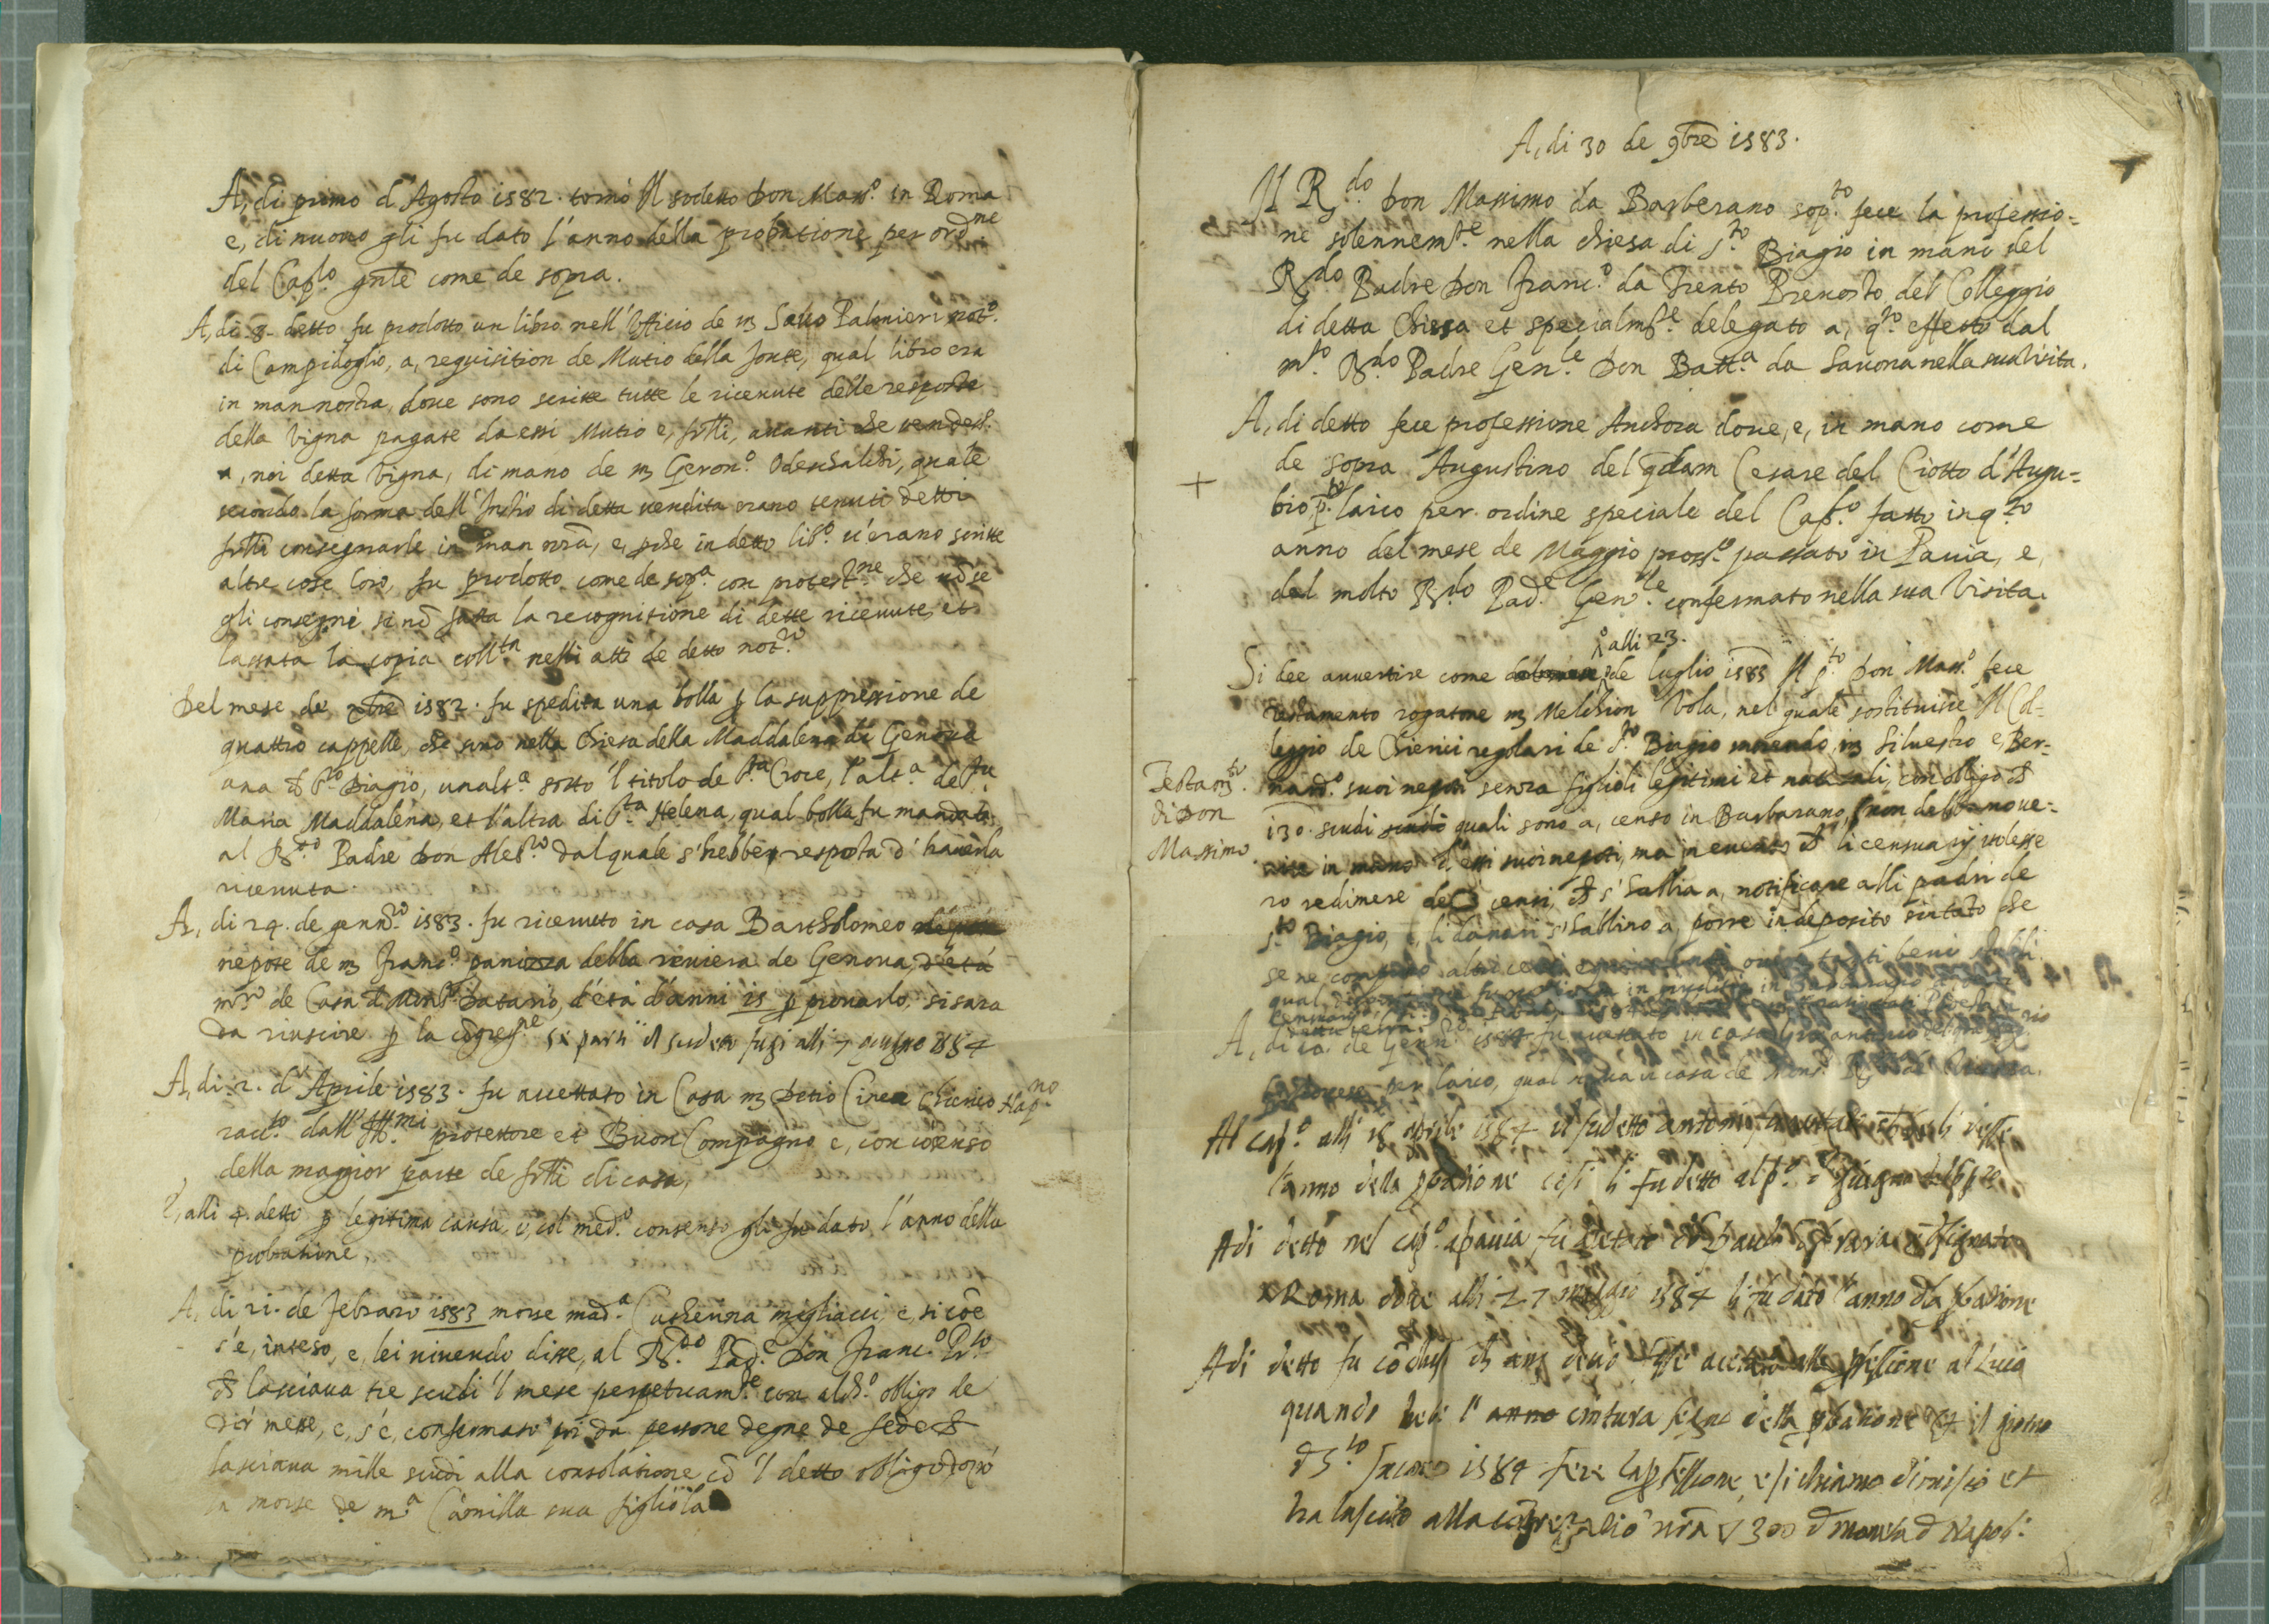 A, di primo d'Agosto 1582. tornò Il sodetto Don Mass.o in Roma
e, di nuovo gli fu dato l'anno della probatione per ord.ne
del Cap.lo gn̄le come de sopra.
A, di 8 detto fu prodotto un libro nell'Officio de m Salvo Palmieri not.o
di Campidoglio, a, requisition de Mutio della fonte, qual libro era
in man nostra, dove sono scritte tutte le ricevute delle resposte
della Vigna pagate da essi Mutio e, frlli, avanti che vendess.
a, noi detta Vigna, di mano de m Geron.o Odeschalchi, quale
secondo la forma dell'Instro di detta vendita erano tenuti detti
frlli consegnarle in man nrā, e, pche in detto lib.o v'erano scritte
altre cose loro, fu prodotto come de sop.a con protest.ne che nō se
gli consegni se nō fatta la recognitione di dette ricevute, et
lassata la copia coll.ta nelli atti de detto not.ro
Del mese de xbre 1582. fu spedita una bolla p la suppressione de
quattro cappelle, che sono nella Chiesa della Maddalena di Genova
una d S.to Biagio, un'alt.a sotto 'l titolo de S.ta Croce, l'alt.a de S.ta
Maria Maddalena, et l'altra di S.ta Helena, qual bolla fu mandata
al R.do Padre Don Aless.ro dal quale s'hebbe resposta d'haverla
ricevuta.
A, di 24. de genn.ro 1583. fu ricevuto in casa Bartholomeo
nepote de m Franc.o panizza della riviera de Genova, d'età
m.ro de Casa d Mons.r Datario, d'età d'anni 15 p provarlo, si sara
da riuscire p la cōgreg.ne se parti il sudetto fugi alli 7 giugno 1584
A, di 2. d'Aprile 1583. fu accettato in Casa m Detio Cirea Chierico Nap.no
racc.to dall' Ill.mi protettore et Buon Compagno e, con cōsenso
della maggior parte de frlli di casa,
E, alli 4 detto p legitima causa, e, col med.o consenso gli fu dato l'anno della
probatione.
A, di 21. de Febraro 1583 morse mad.a Lucherina migliacci, e, si cōe
s'è, inteso, e, lei vivendo disse, al R.do Pad.e Don Franc.o P.to
ch lasciava tre scudi 'l mese perpetuam.te con alch.o obligo de
dir messe, e, s'è, confirmato poi da persone degne de fede ch
lasciava mille scudi alla consolatione, cō 'l detto obligo dopo
la morte de m.a Camilla sua figliola
A, di 30 de 9bre 1583.
Il R.do Don Massimo da Barberano sop.to fece la professio=
ne solennem.te nella chiesa di S.to Biagio in mano del
R.do Padre Don Franc.o da Trento Prevosto del Colleggio
di detta Chiesa et specialm.te delegato a, q.to effetto dal
m.to R.do Padre Gen.le Don Batt.a da Savona nella sua Visita.
A, di detto fece professione Anchora dove, e, in mano come
de sopra Augustino del qdam Cesare del Ciotto d'Augu=
+
bio p.to laico per ordine speciale del Cap.lo fatto in q.to
anno del mese de Maggio pross.o passato in Pavia, e,
dal molto R.do Pad.e Gen.le confermato nella sua Visita.
alli 23.
Si dee avvertire come de luglio 1583 Il p.to Don Mass.o fece
testamento rogatone m Melchion Vola, nel quale sostituisce Il Col=
leggio de Chierici regolari de S.to Biagio morendo m Silvestro e, Ber=
Testam.to
di Don
Massimo
nard.o suoi nepoti senza figlioli legitimi et naturali, con obligo ch
130. scudi quali sono a, censo in Barbarano, non debbano ve=
nire in mano d'essi suoi nepoti, ma in evento ch li censuarij volesse
ro redimere detti censi, ch s'habbia a, notificare alli padri de
S.to Biagio, e, li danari s'habbino a, porre in deposito sin tato che
se ne comprino altri censi tanti beni stabili
A, di 10. de Genn.o 1584 fu accettato in casa Gio: antonio
per laico, qual stava in casa de Mons.r
Al cap.o alli 15 aprile 1584 il sudetto antonio fu
l'anno della pbatione cosi li fu detto al p.o d giugno
Adi detto nel cap.o a pavia fu
a Roma dove alli 27 maggio 1584 li fu dato l'anno dla pbatione
Adi detto fu cōcluso
quando hebe l'anno cintura segno della pbatione et il giorno
d S.to 1584 fece la pfessione, e si chiamo dionisio et
ha lasciato alla nrā 300 d moneta d Napoli